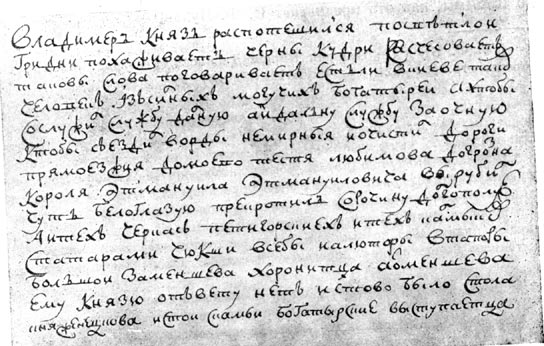 Владимеръ Князь распотешился посветлои
гридни похаживаетъ черны кудри расчесоваетъ
таковы слова поговариваетъ естьли вкиеве таковъ
человекъ изсилныхъ могучихъ богатыреи актобы
сослужилъ службу далную аидалну службу заочную
ктобы съездилъ ворды немирныя иочистилъ дороги
прямоезжия домоего тестя любимова догрозна
короля Этмануила Этмануиловича вырубилъ
чудь белоглазую прекротилъ сорочину долгополую
аитехъ черкасъ петигорскиехъ итехъ калмыковъ
статарами чюкши всебы иалюторы втапоры
большои заменшева хоронитца аотменшева
ему князю ответу нетъ истово было стола
княженецкова истои скамьи богатырские выступаетца